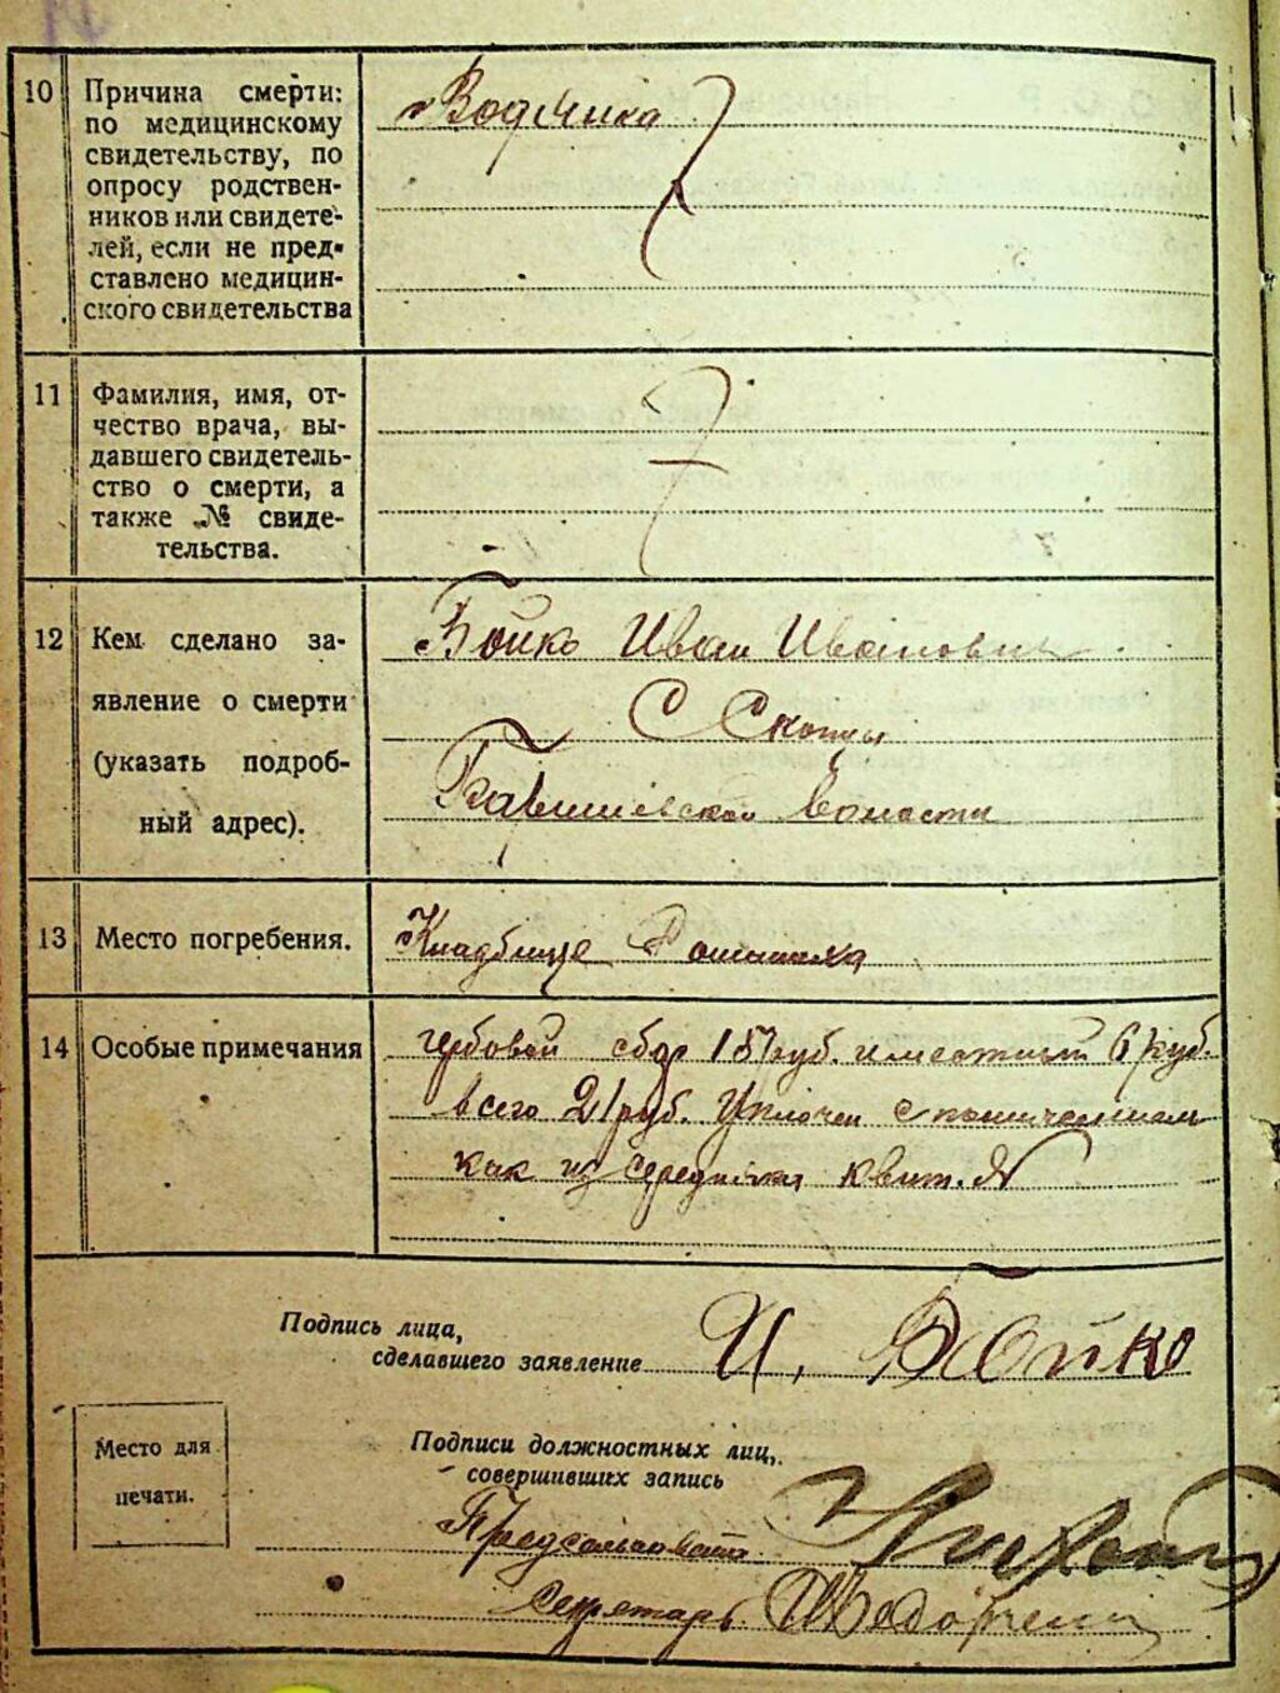 10 Причина смерти:
по медицинскому
свидетельству, по
опросу родствен-
ников или свидете-
лей, если не пред-
ставлено медицин-
ского свидетельства
Водянка
11 Фамилия, имя, от-
чество врача, вы-
давшего свидетель-
ство о смерти, а
также № свиде-
тельства.
12 Кем сделано за-
явление о смерти
(указать подроб-
ный адрес).
Бойко Иван Иванович
С Скопцы
волости
13 Место погребения.
Кладбище
14 Особые примечания
гербовый сбор 15 руб. и местный 6 руб.
всего 21 руб. Уплочен с
как из середняка квит. №
Подпись лица,
сделавшего заявление
И. Бойко
Место для
печати.
Подписи должностных лиц,
совершивших запись
Предсельсовета
Секретарь